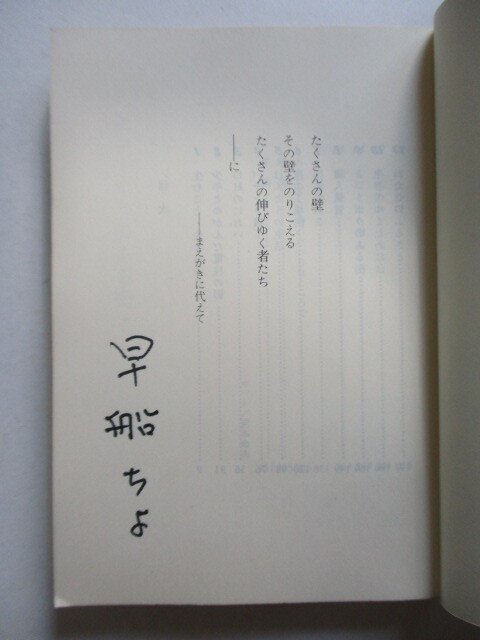 たくさんの壁
その壁をのりこえる
たくさんの伸びゆく者たち
――に
――まえがきに代えて
早船ちよ